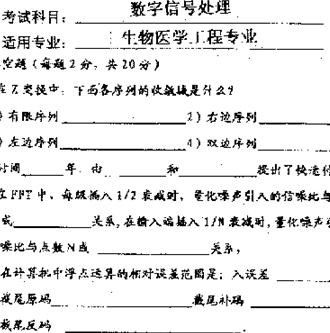 考试科目: 数字信号处理
适用专业: 生物医学工程专业
空题(每题2分, 共20分)
在Z变换中: 下面各序列的收敛域是什么?
有限序列 2) 右边序列
左边序列 4) 双边序列
时间 年, 由 和 提出了快速付
在FFT中, 每级插入1/2衰减时, 量化噪声引入的信噪比与
成 关系, 在输入端插入1/N衰减时, 量化噪声引
噪比与点数N成 关系,
在计算机中浮点运算的相对误差范围是: 入误差
截尾原码 截尾补码
截尾反码 .